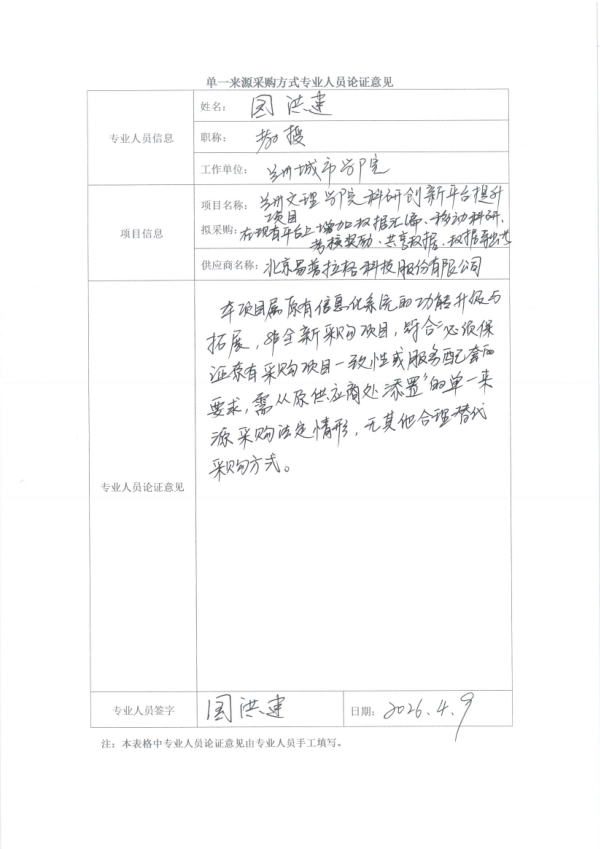 单一来源采购方式专业人员论证意见
专业人员信息
姓名：国洪建
职称：教授
工作单位：兰州城市学院
项目信息
项目名称：兰州文理学院科研创新平台提升
项目
拟采购：在现有平台上增加数据汇缔、移动科研、
考核奖励、共享数据、数据导出等
供应商名称：北京易普拉格科技股份有限公司
专业人员论证意见
本项目属原有信息化系统的功能升级与
拓展，非全新采购项目，符合“必须保
证原有采购项目一致性或服务配套的
要求，需从原供应商处添置”的单一来
源采购法定情形，无其他合理替代
采购方式。
专业人员签字
国洪建
日期：2026.4.9
注：本表格中专业人员论证意见由专业人员手工填写。